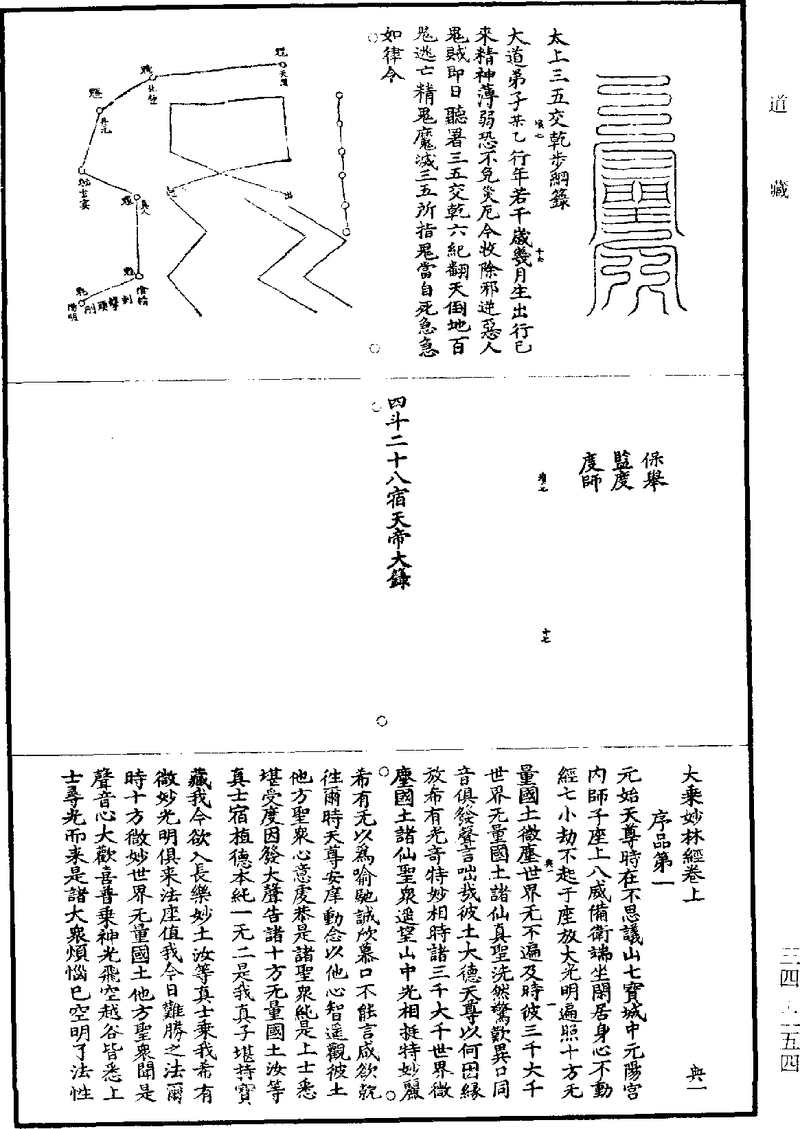 道藏
太上三五交乾步綱籙
大道弟子某乙行年若干歲幾月生出行已
來精神薄弱恐不免災厄今收除邪逆惡人
鬼賊即日聽署三五交乾六紀翻天倒地百
鬼逃亡精鬼魔滅三五所指鬼當自死急急
如律令
保舉
監度
度師
四斗二十八宿天帝大籙
大乘妙林經卷上
典一
序品第一
元始天尊時在不思議山七寶城中元陽宮
內師子座上八威備衛端坐閑居身心不動
經七小劫不起于座放大光明遍照十方无
量國土微塵世界无不遍及時彼三千大千
世界无量國土諸仙真聖洗然驚歎異口同
音俱發聲言咄哉彼土大德天尊以何因緣
放希有光奇特妙相時諸三千大千世界微
塵國土諸仙聖眾遥望山中光相挺特妙麗
希有无以為喻馳誠欣慕口不能言咸欲飢
往爾時天尊安庠動念以他心智遥觀彼土
他方聖眾心意虔恭是諸聖眾純是上士悉
堪受度因發大聲告諸十方无量國土汝等
真士宿植德本純一无二是我真子堪持寶
藏我今欲入長樂妙土汝等真士乘我希有
微妙光明俱來法座值我今日難勝之法爾
時十方微妙世界无量國土他方聖眾聞是
聲音心大歡喜普乘神光飛空越谷皆悉上
士尋光而来是諸大眾煩惱已空明了法性